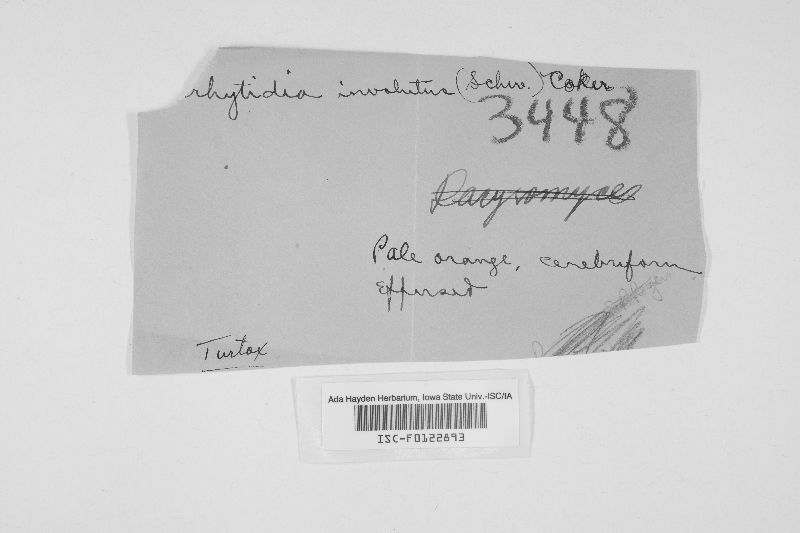 rhytidia involutus (Schw.) Coker
3448
Dacryomyces
Pale orange, cerebriform
effused
Turtox
Ada Hayden Herbarium, Iowa State Univ.-ISC/IA
ISC-F0122893